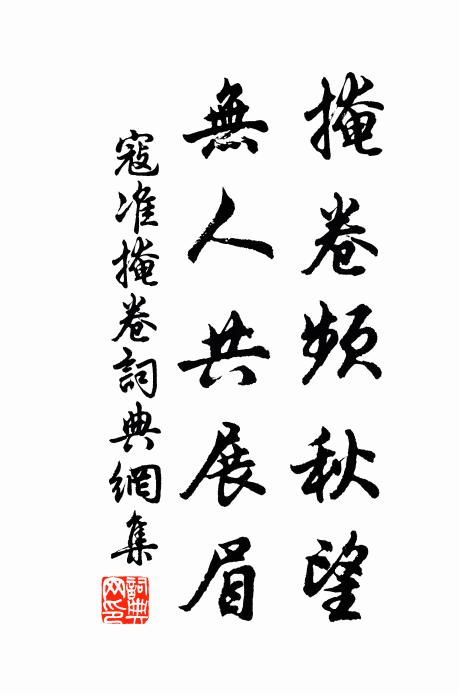 掩卷頻秋望
無人共展眉
寇准掩卷詞典網集
詞典网印